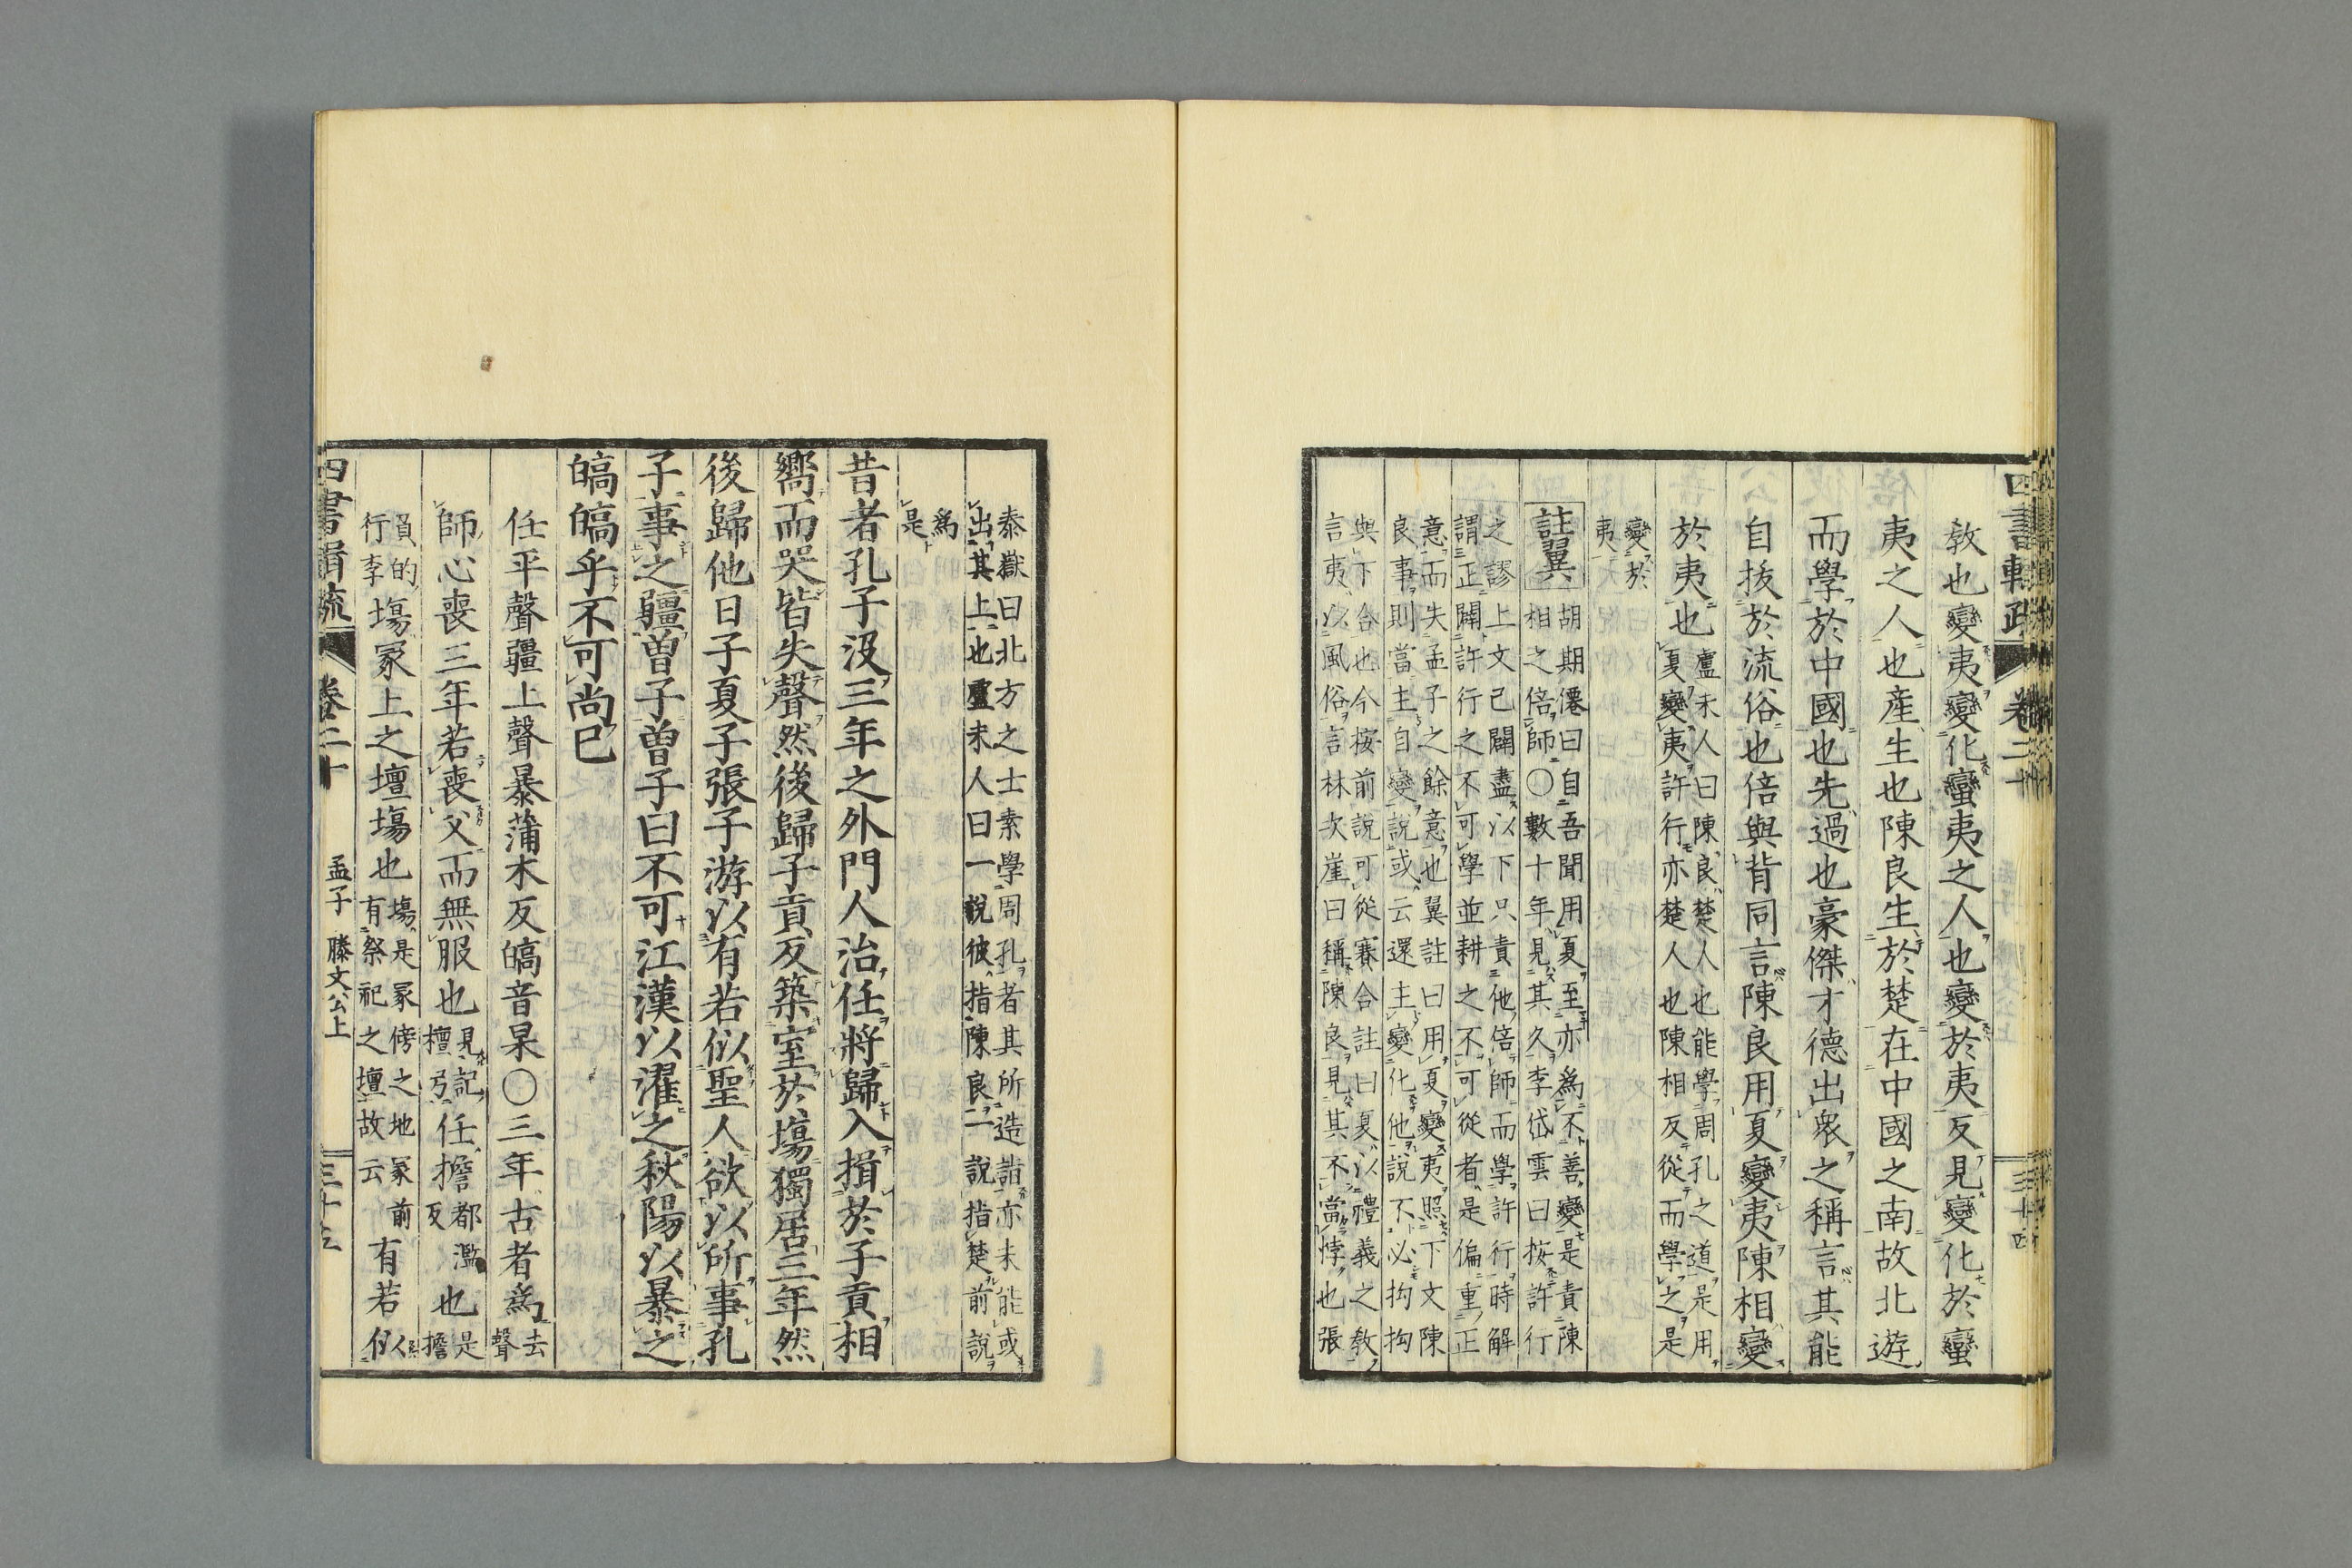 四書輯疏 卷二十 三十四
敎也變夷變化蠻夷之人也變於夷反見變化於蠻
夷之人也産生也陳良生於楚在中國之南故北遊
而學於中國也先過也豪傑才德出衆之稱言其能
自拔於流俗也倍與背同言陳良用夏變夷陳相變
於夷也
盧未人曰陳良楚人也能學周孔之道是用
夏變夷許行亦楚人也陳相反從而學之是
變於
夷
註翼
胡期僊曰自吾聞用夏至亦爲不善變是責陳
相之倍師〇數十年見其久李岱雲曰按許行
之謬上文已闢盡以下只責他倍師而學許行時解
謂正闢許行之不可學並耕之不可從者是偏重正
意而失孟子之餘意也翼註曰用夏變夷照下文陳
良事則當主自變說或云還主變化他說不必拘拘
與下合也今按前說可從賽合註曰夏以禮義之敎
言夷以風俗言林次崖曰稱陳良見其不當悖也張
泰嶽曰北方之士素學周孔者其所造詣亦未能或
出其上也盧未人曰一說彼指陳良一說指楚前說
爲
是
昔者孔子沒三年之外門人治任將歸入揖於子貢相
嚮而哭皆失聲然後歸子貢反築室於塲獨居三年然
後歸他日子夏子張子游以有若似聖人欲以所事孔
子事之彊曾子曾子曰不可江漢以濯之秋陽以暴之
皜皜乎不可尚已
任平聲彊上聲暴蒲木反皜音杲〇三年古者爲
去
聲
師心喪三年若喪父而無服也
見記
檀弓
任擔
都濫
反
也
是
擔
負的
行李
塲冢上之壇塲也
塲是冢傍之地冢前
有祭祀之壇故云
有若似
四書輯疏 卷二十 孟子 滕文公上 三十五